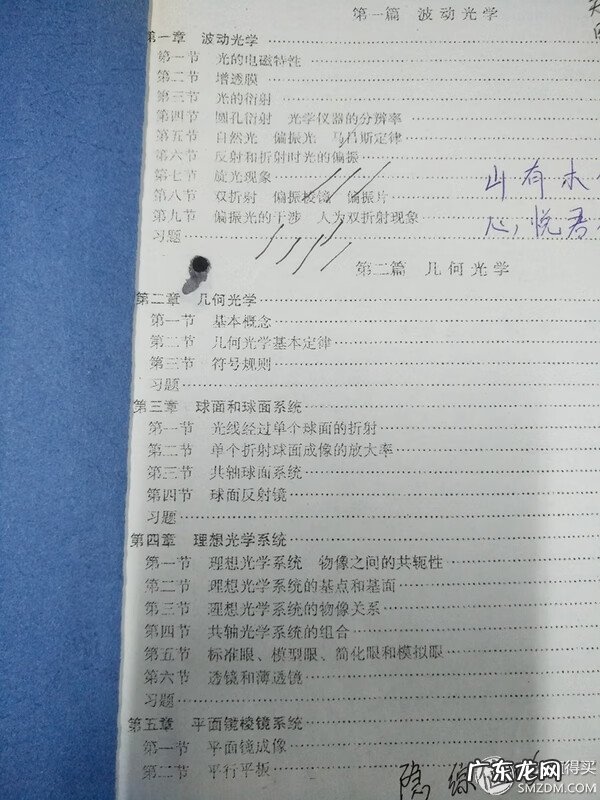 第一篇 波动光学
第一章 波动光学
第一节 光的电磁特性
第二节 增透膜
第三节 光的衍射
第四节 圆孔衍射 光学仪器的分辨率
第五节 自然光 偏振光 马吕斯定律
第六节 反射和折射时光的偏振
第七节 旋光现象
第八节 双折射 偏振棱镜 偏振片
第九节 偏振光的干涉 人为双折射现象
习题
山有木
心,悦君
第二篇 几何光学
第二章 几何光学
第一节 基本概念
第二节 几何光学基本定律
第三节 符号规则
习题
第三章 球面和球面系统
第一节 光线经过单个球面的折射
第二节 单个折射球面成像的放大率
第三节 共轴球面系统
第四节 球面反射镜
习题
第四章 理想光学系统
第一节 理想光学系统 物像之间的共轭性
第二节 理想光学系统的基点和基面
第三节 理想光学系统的物像关系
第四节 共轴光学系统的组合
第五节 标准眼、模型眼、简化眼和模拟眼
第六节 透镜和薄透镜
习题
第五章 平面镜棱镜系统
第一节 平面镜成像
第二节 平行平板
广东龙网
得买
SMZDM.COM